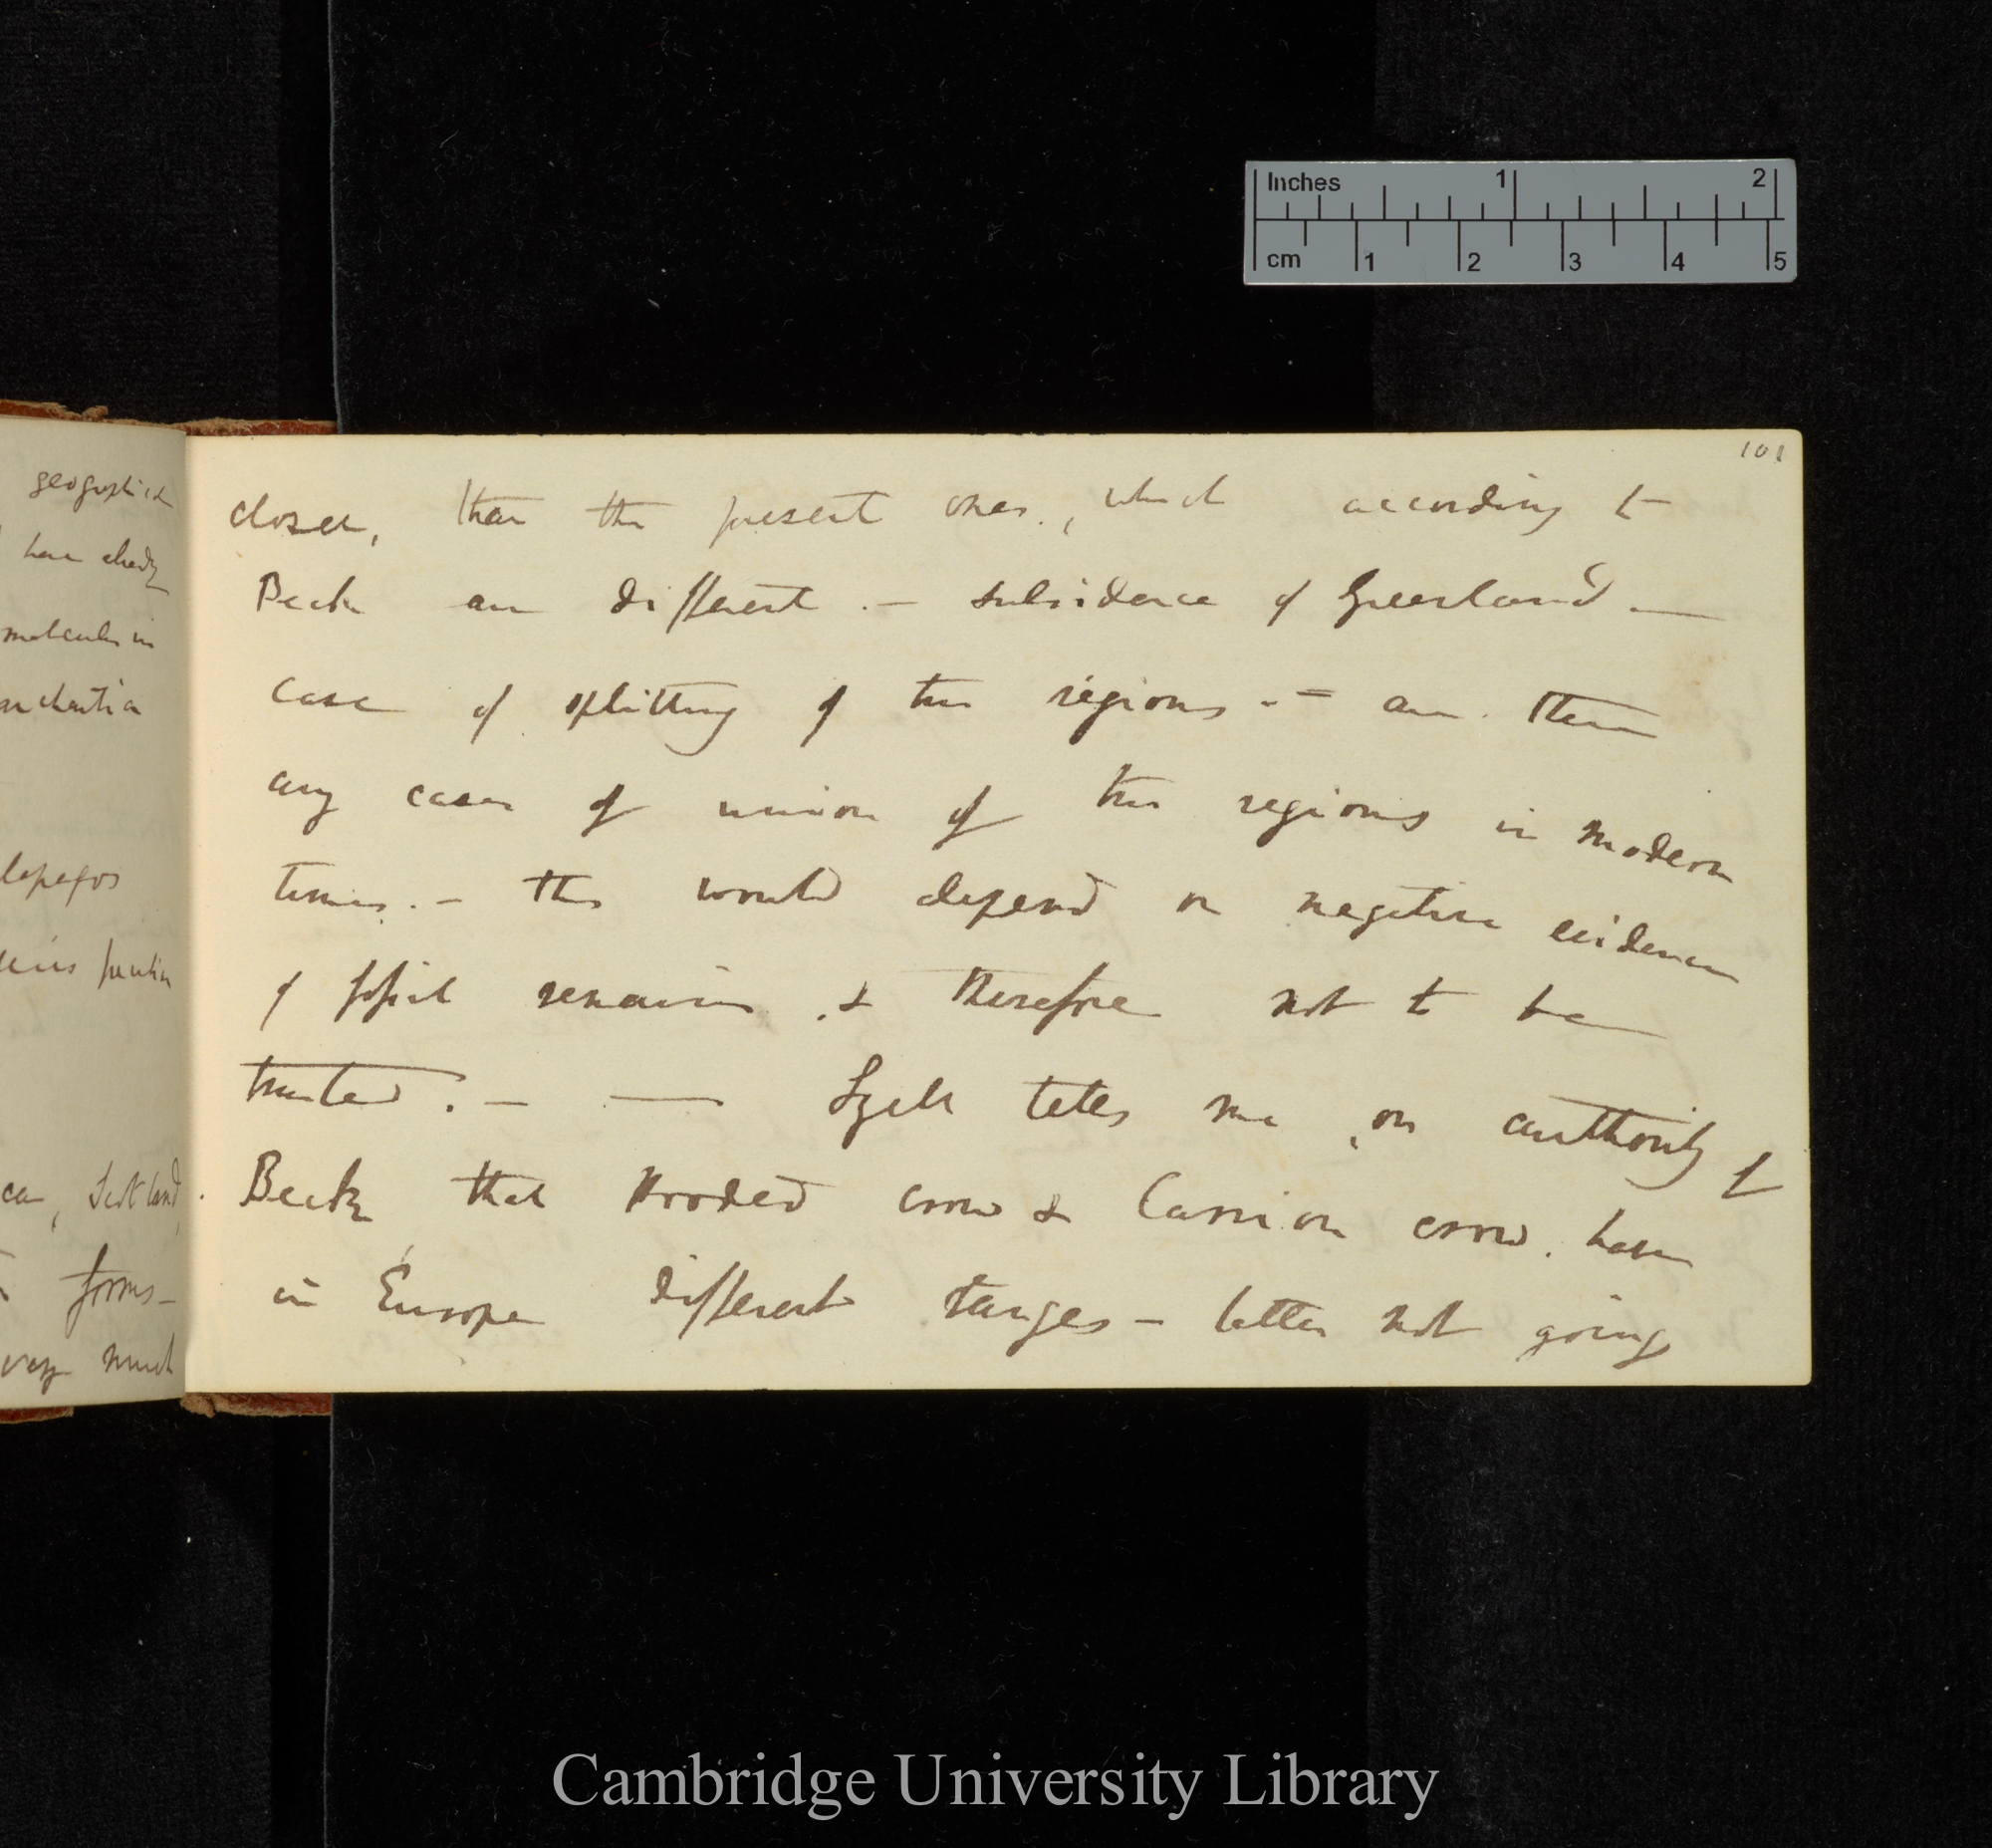 Inches 1 2
cm 1 2 3 4 5
geographical
have already
molecules in
lapagos
Scotland,
forms—
very much
101
closer, than the present ones, which according to
Beck are different.— subsidence of Greenland.—
case of splitting of two regions.— are there
any cases of union of two regions in modern
times.— this would depend on negative evidence
of fossil remains, & therefore not to be
trusted.— — Lyell tells me, on authority of
Beck that Hooded crow & Carrion crow. have
in Europe different ranges — latter not going
Cambridge University Library